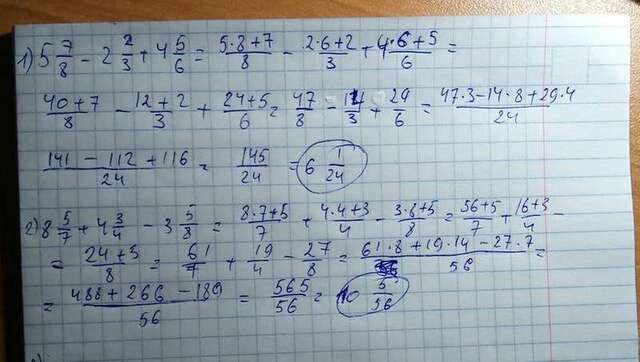 1) 5 7/8 - 2 2/3 + 4 5/6 = (5·8+7)/8 - (2·6+2)/3 + (4·6+5)/6 =
(40+7)/8 - (12+2)/3 + (24+5)/6 = 47/8 - 14/3 + 29/6 = (47·3-14·8+29·4)/24
(141-112+116)/24 = 145/24 = 6 1/24
2) 8 5/7 + 4 3/4 - 3 5/8 = (8·7+5)/7 + (4·4+3)/4 - (3·8+5)/8 = (56+5)/7 + (16+3)/4 -
= (24+5)/8 = 61/7 + 19/4 - 27/8 = (61·8+19·14-27·7)/56 =
= (488+266-189)/56 = 565/56 = 10 5/56